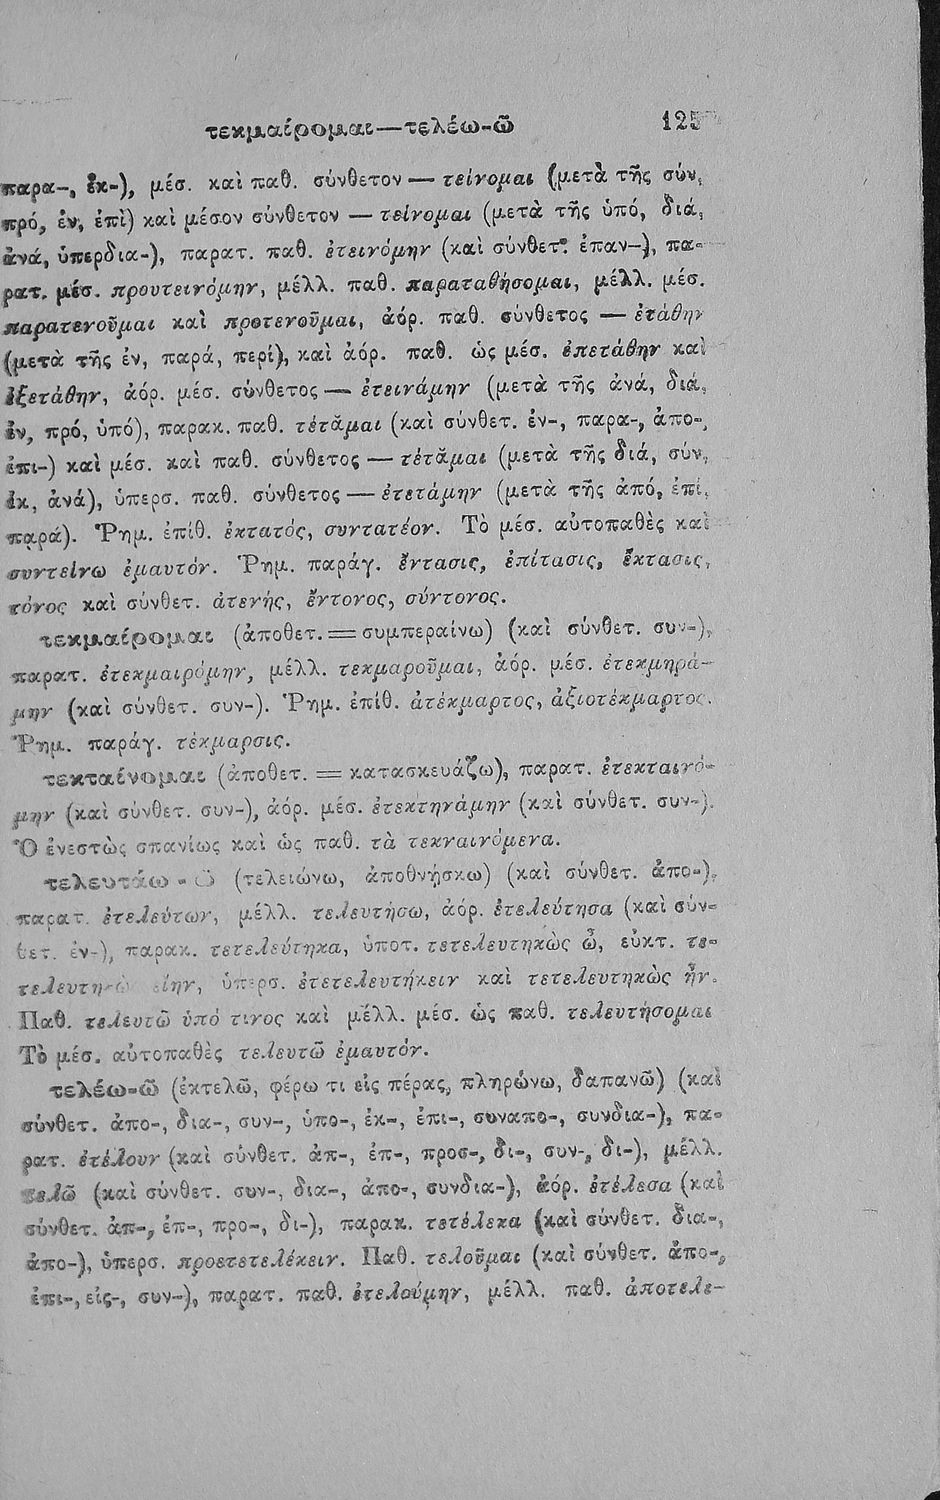 τεκμαίρομαι—τελέω-ῶ 125
παρα-, ἐκ-), μέσ. καὶ παθ. σύνθετον — τείνομαι (μετὰ τῆς σύν,
πρό, ἐν, ἐπὶ) καὶ μέσον σύνθετον — τείνομαι (μετὰ τῆς ὑπό, διά,
ἀνά, ὑπερδια-), παρατ. παθ. ἐτεινόμην (καὶ σύνθετ. ἐπαν-), πα-
ρατ. μέσ. προυτεινόμην, μέλλ. παθ. παραταθήσομαι, μέλλ. μέσ.
παρατενοῦμαι καὶ προτενοῦμαι, ἀόρ. παθ. σύνθετος — ἐτάθην
(μετὰ τῆς ἐν, παρά, περί), καὶ ἀόρ. παθ. ὡς μέσ. ἐπετάθην καὶ
ἐξετάθην, ἀόρ. μέσ. σύνθετος — ἐτεινάμην (μετὰ τῆς ἀνά, διά,
ἐν, πρό, ὑπό), παρακ. παθ. τέτᾰμαι (καὶ σύνθετ. ἐν-, παρα-, ἀπο-,
ἐπι-) καὶ μέσ. καὶ παθ. σύνθετος — τέτᾰμαι (μετὰ τῆς διά, σύν,
ἐκ, ἀνά), ὑπερσ. παθ. σύνθετος — ἐτετάμην (μετὰ τῆς ἀπό, ἐπί,
παρά). Ῥημ. ἐπίθ. ἐκτατός, συντατέον. Τὸ μέσ. αὐτοπαθὲς καὶ
συντείνω ἐμαυτόν. Ῥημ. παράγ. ἔντασις, ἐπίτασις, ἔκτασις,
τόνος καὶ σύνθετ. ἀτενής, ἔντονος, σύντονος.
τεκμαίρομαι (ἀποθετ. = συμπεραίνω) (καὶ σύνθετ. συν-),
παρατ. ἐτεκμαιρόμην, μέλλ. τεκμαροῦμαι, ἀόρ. μέσ. ἐτεκμηρά-
μην (καὶ σύνθετ. συν-). Ῥημ. ἐπίθ. ἀτέκμαρτος, ἀξιοτέκμαρτος.
Ῥημ. παράγ. τέκμαρσις.
τεκταίνομαι (ἀποθετ. = κατασκευάζω), παρατ. ἐτεκταινό-
μην (καὶ σύνθετ. συν-), ἀόρ. μέσ. ἐτεκτηνάμην (καὶ σύνθετ. συν-).
Ὁ ἐνεστὼς σπανίως καὶ ὡς παθ. τὰ τεκναινόμενα.
τελευτάω-ῶ (τελειώνω, ἀποθνήσκω) (καὶ σύνθετ. ἀπο-),
παρατ. ἐτελεύτων, μέλλ. τελευτήσω, ἀόρ. ἐτελεύτησα (καὶ σύν-
θετ. ἐν-), παρακ. τετελεύτηκα, ὑποτ. τετελευτηκὼς ὦ, εὐκτ. τε-
τελευτηκὼς εἴην, ὑπερσ. ἐτετελευτήκειν καὶ τετελευτηκὼς ἦν.
Παθ. τελευτῶ ὑπό τινος καὶ μέλλ. μέσ. ὡς παθ. τελευτήσομαι
Τὸ μέσ. αὐτοπαθὲς τελευτῶ ἐμαυτόν.
τελέω-ῶ (ἐκτελῶ, φέρω τι εἰς πέρας, πληρώνω, δαπανῶ) (καὶ
σύνθετ. ἀπο-, δια-, συν-, ὑπο-, ἐκ-, ἐπι-, συναπο-, συνδια-), πα-
ρατ. ἐτέλουν (καὶ σύνθετ. ἀπ-, ἐπ-, προσ-, δι-, συν-, δι-), μέλλ.
τελῶ (καὶ σύνθετ. συν-, δια-, ἀπο-, συνδια-), ἀόρ. ἐτέλεσα (καὶ
σύνθετ. ἀπ-, ἐπ-, προ-, δι-), παρακ. τετέλεκα (καὶ σύνθετ. δια-,
ἀπο-), ὑπερσ. προετετελέκειν. Παθ. τελοῦμαι (καὶ σύνθετ. ἀπο-,
ἐπι-, εἰς-, συν-), παρατ. παθ. ἐτελούμην, μέλλ. παθ. ἀποτελε-